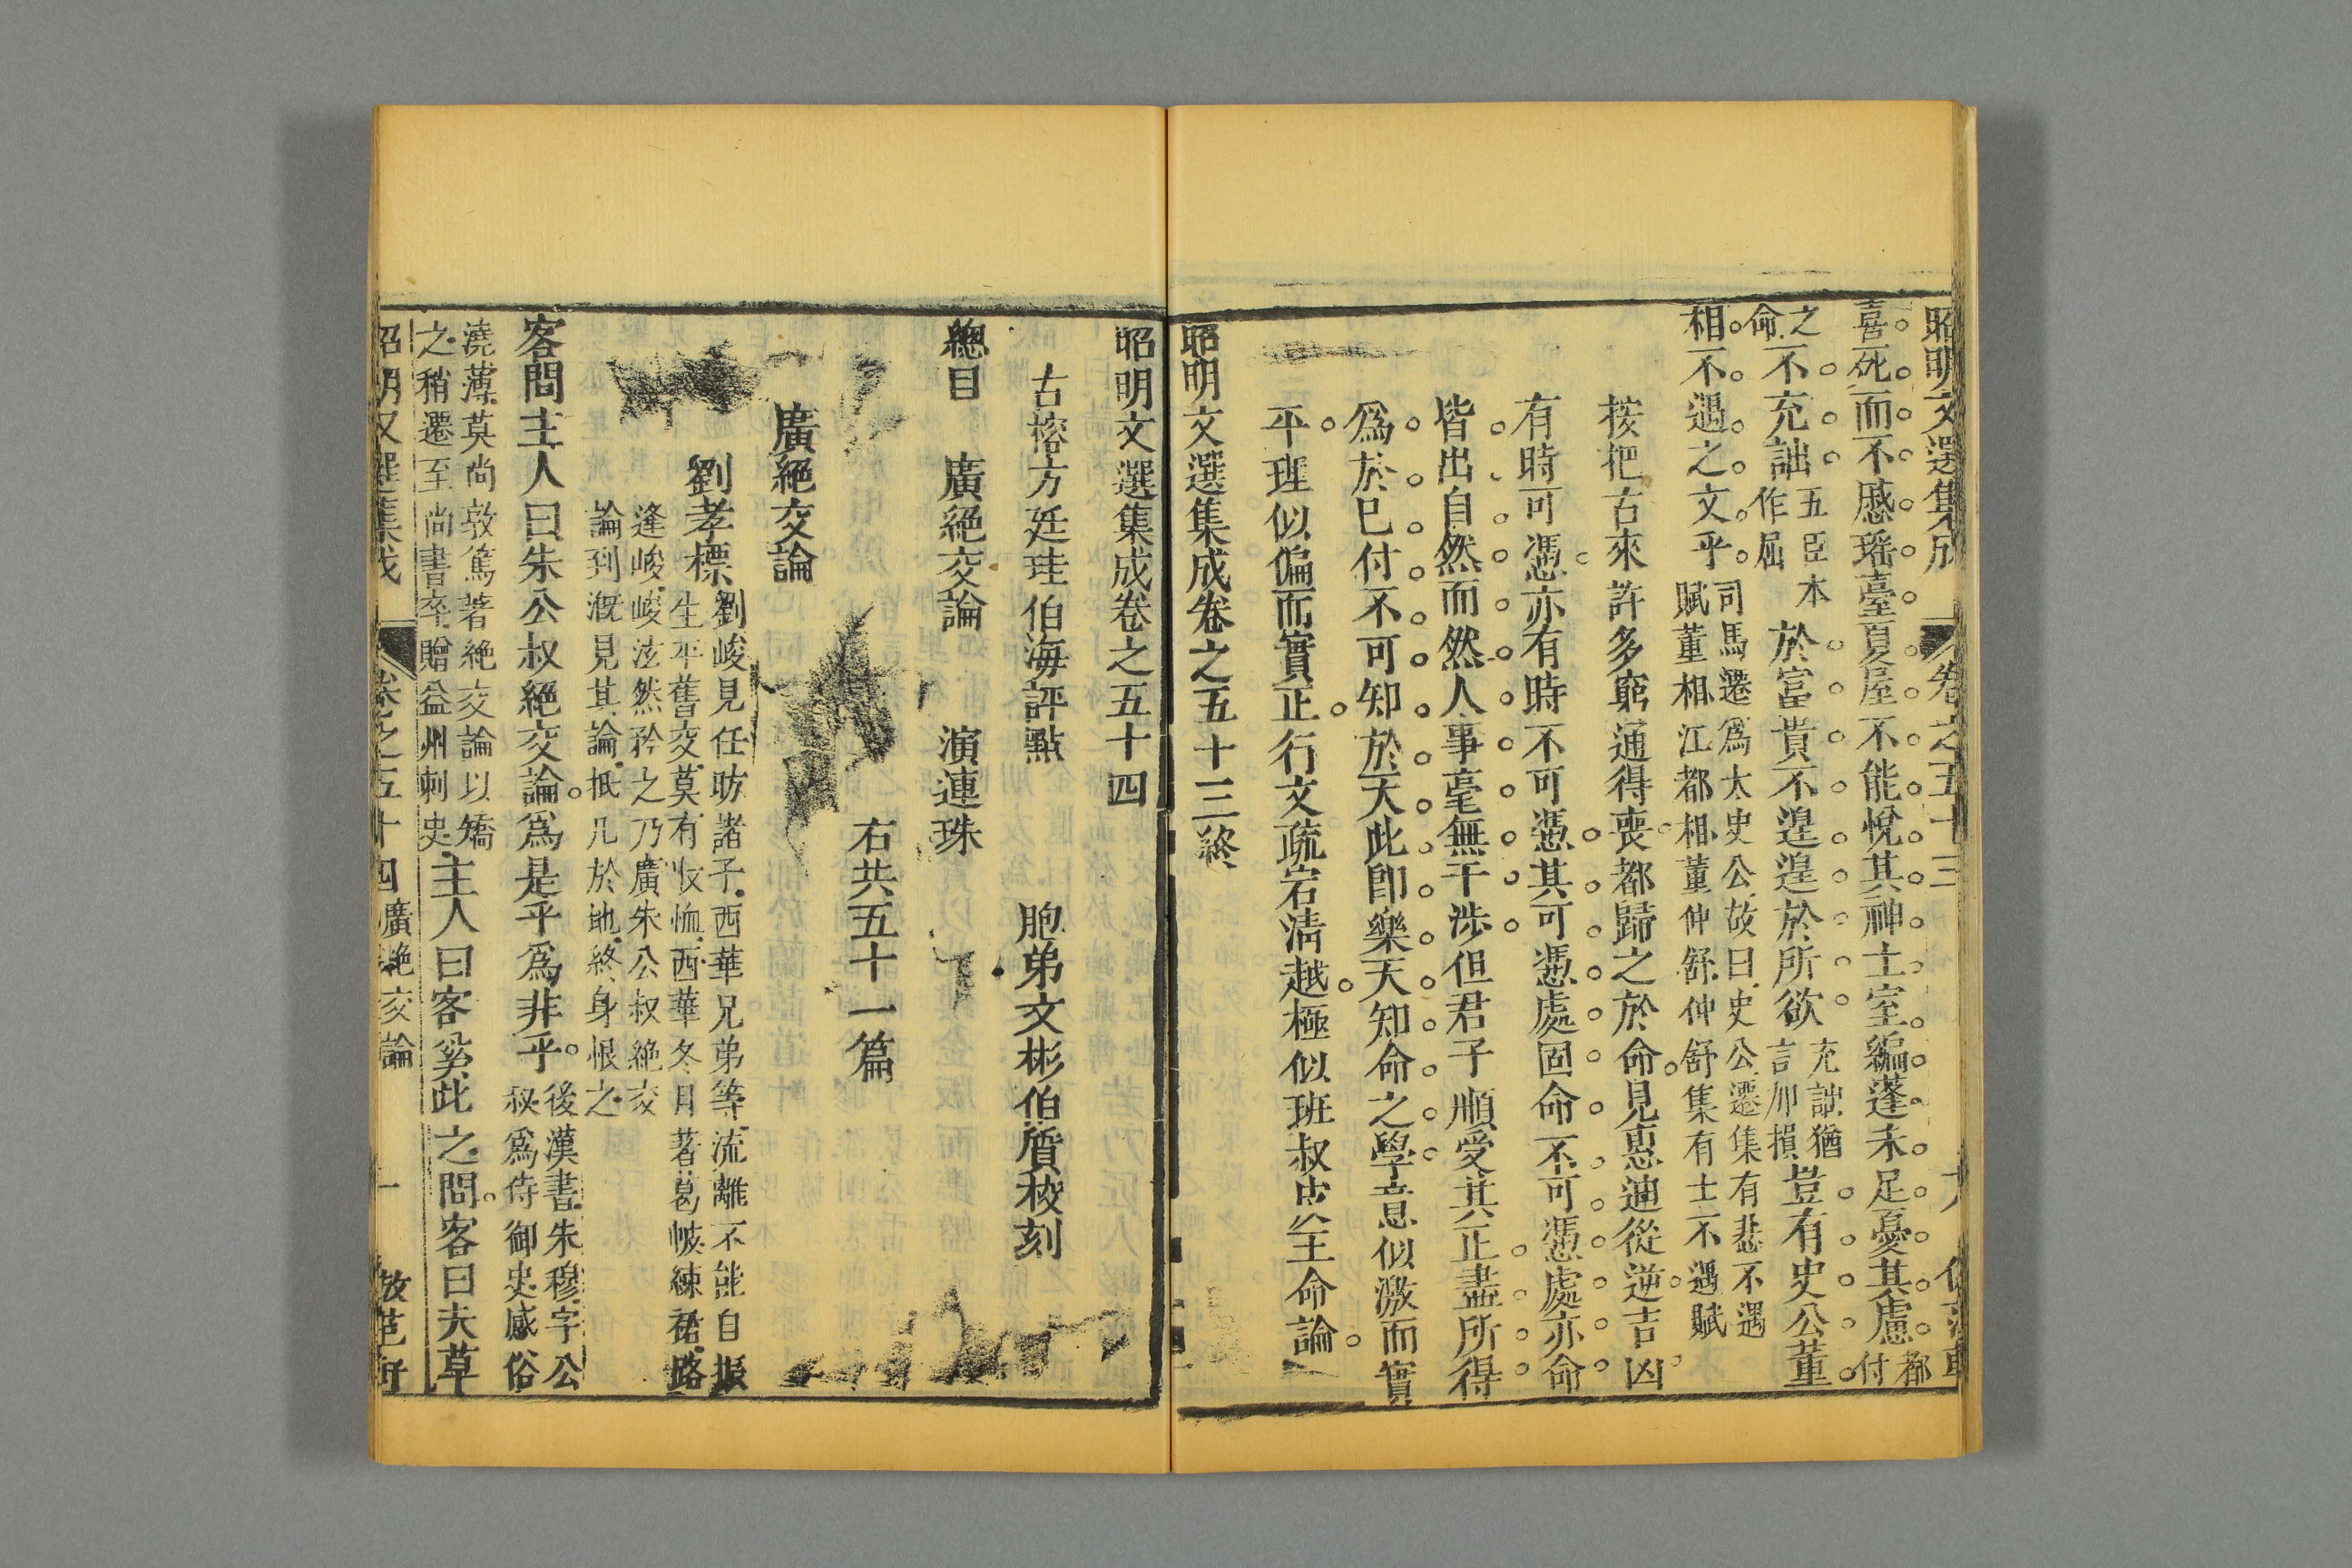 昭明文選集成 卷之五十三
喜死而不慼瑶臺夏屋不能悅其神土室編蓬未足憂其慮都付
之命不充詘五臣本作屈於富貴不遑遑於所欲充詘猶言卹損豈有史公董
相不遇之文乎司馬遷爲太史公故曰史公遷集有悲不遇賦董相江都相董仲舒仲舒集有士不遇賦
按把古來許多窮通得喪都歸之於命見惠迪從逆吉凶
有時可憑亦有時不可憑其可憑處固命不可憑處亦命
皆出自然而然人事毫無干涉但君子順受其正盡所得
爲於已付不可知於天此即樂天知命之學意似激而實
平理似偏而實正行文疏宕淸越極似班叔皮王命論
昭明文選集成卷之五十三終
昭明文選集成卷之五十四
古榕方廷珪伯海評點 胞弟文彬伯質校刻
總目 廣絕交論 演連珠
右共五十一篇
廣絕交論
劉孝標劉峻見任昉諸子西華兄弟等流離不能自振生平舊交莫有收恤西華冬月著葛帔練裙路
逢峻峻泫然矜之乃廣朱公叔絕交論到溉見其論抵几於地終身恨之
客問主人曰朱公叔絕交論爲是乎爲非乎後漢書朱穆字公叔爲侍御史感俗
澆薄莫尚敦篤著絕交論以矯之稍遷至尚書卒贈益州刺史主人曰客奚此之問客曰夫草
昭明文選集成 卷之五十四 廣絕交論 一 倣范軒